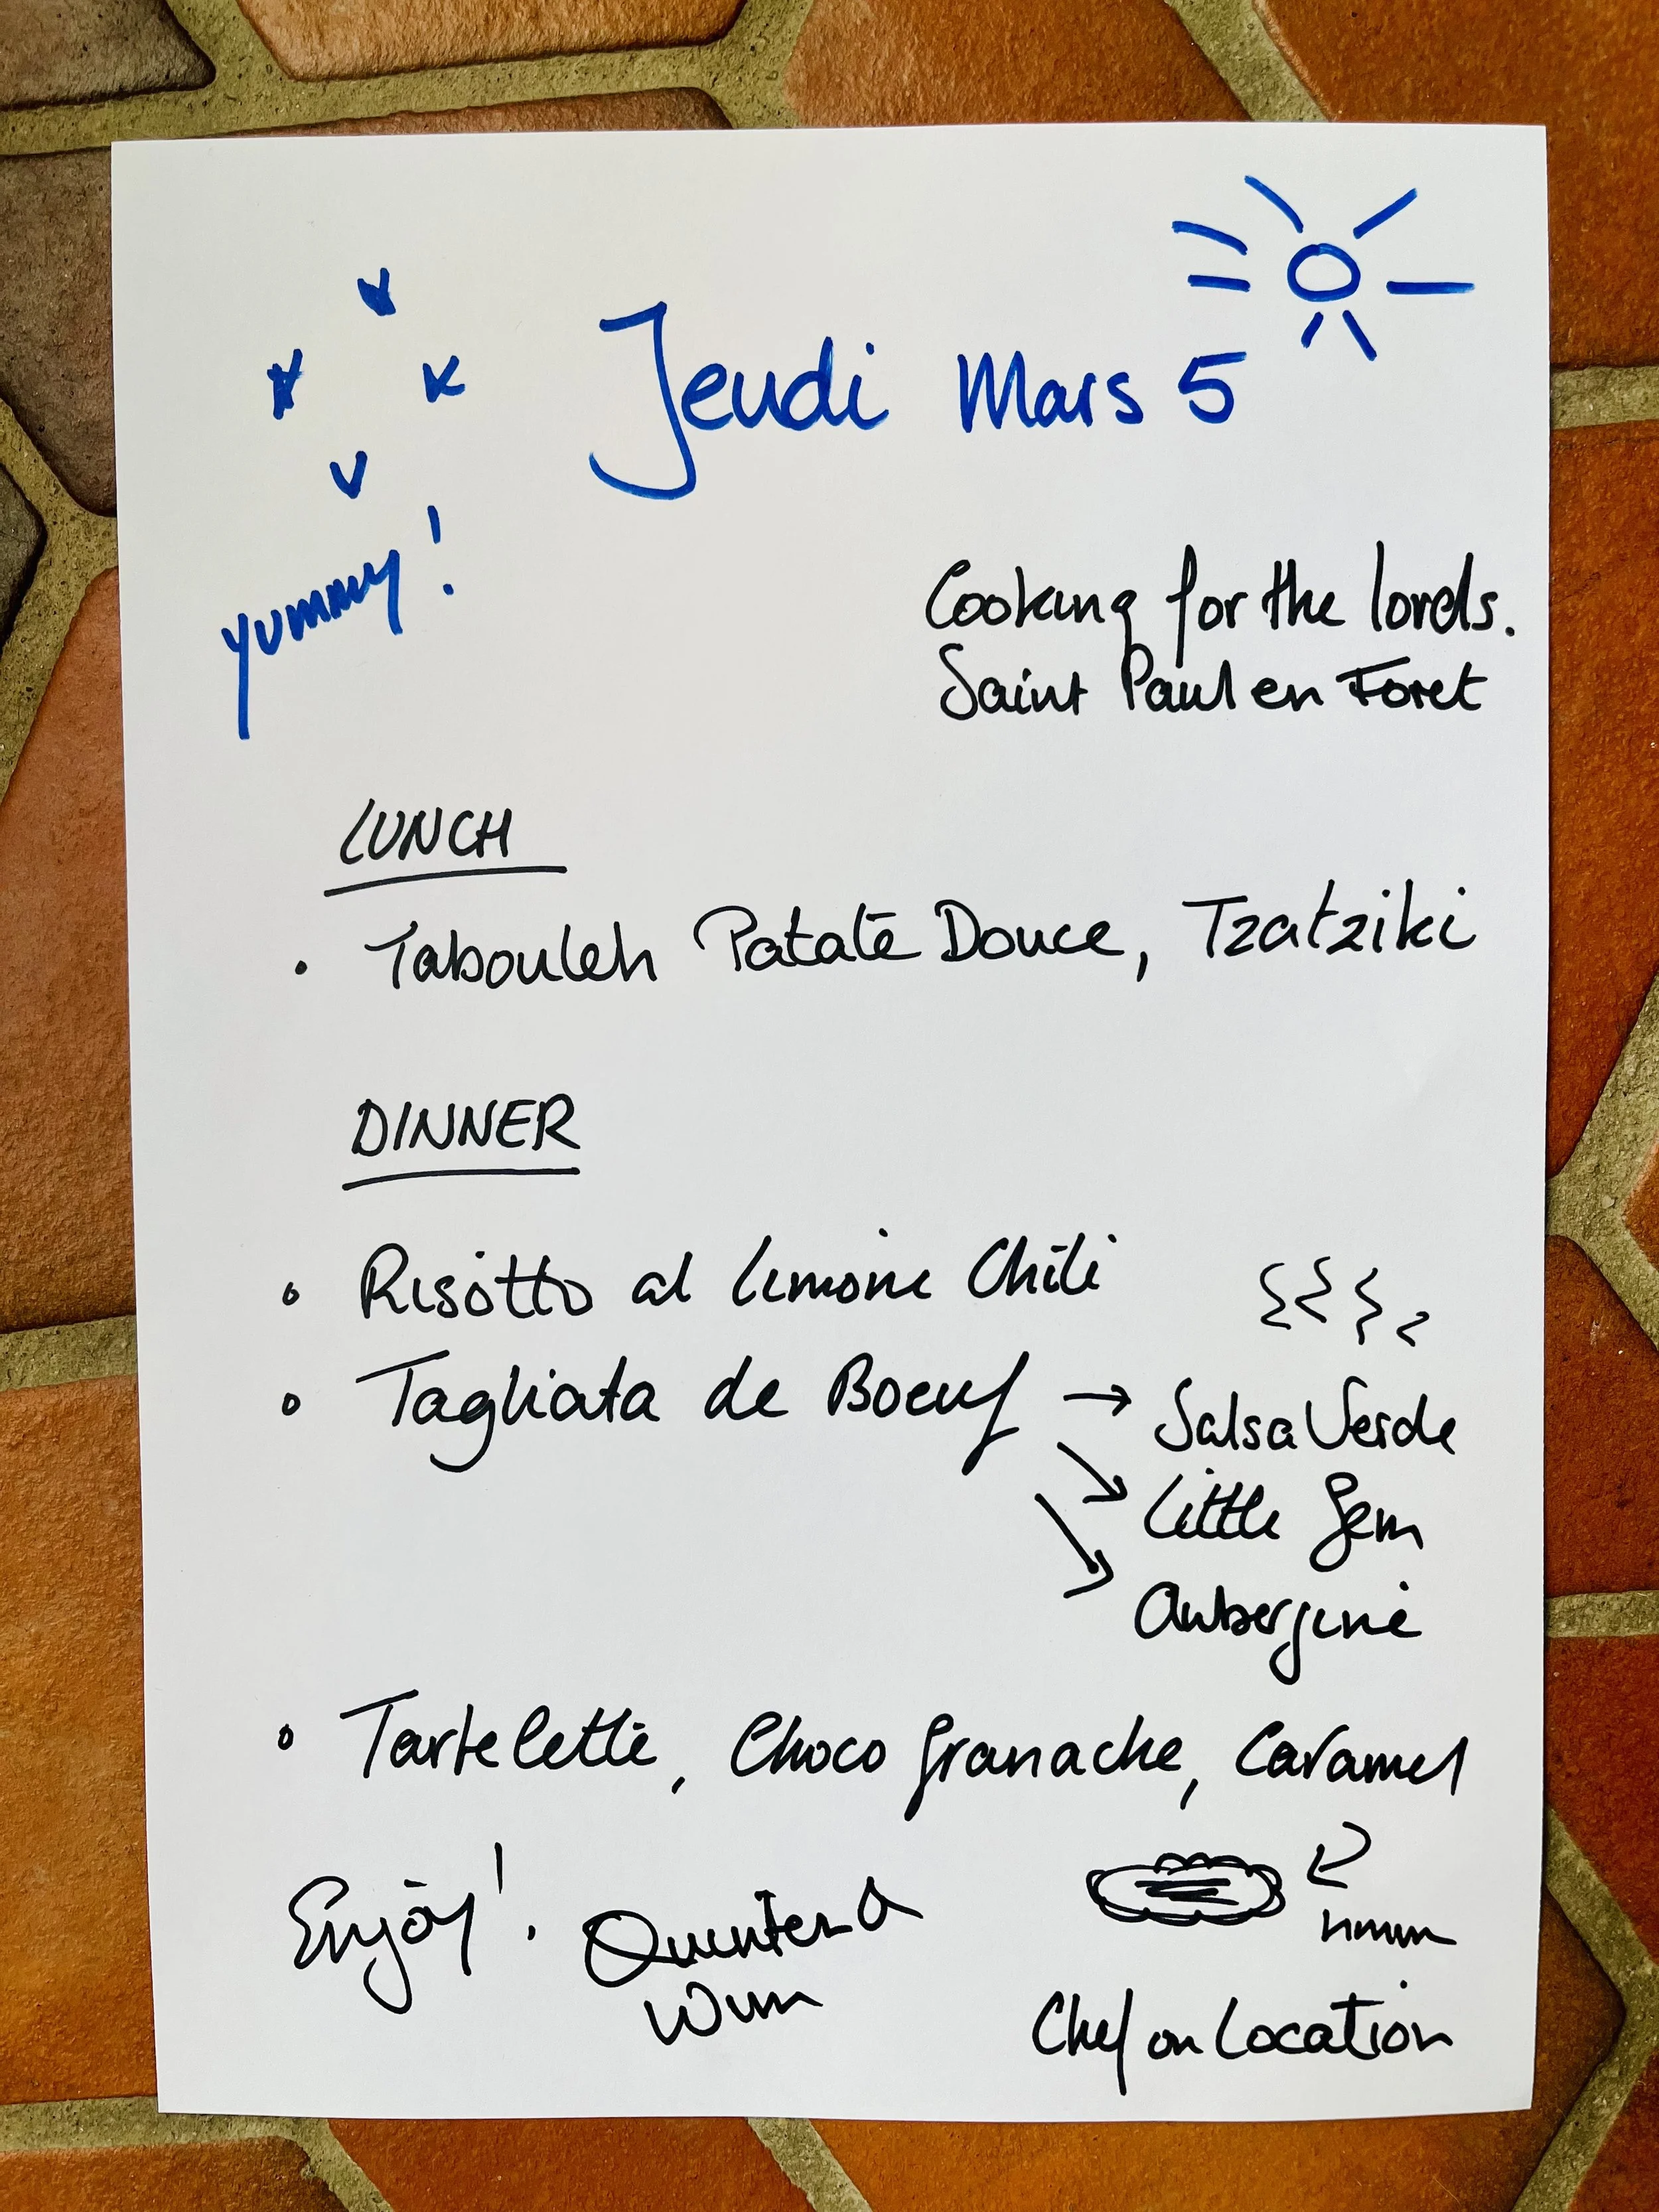 Jeudi Mars 5
yummy!
Cooking for the lords.
Saint Paul en Foret
LUNCH
• Tabouleh Patate Douce, Tzatziki
DINNER
• Risotto al limone Chili
• Tagliata de Boeuf → Salsa Verde
↘ Little Gem
↘ Aubergine
• Tartelette, Choco Granache, Caramel
Enjoy!.
Wim
Chef on Location